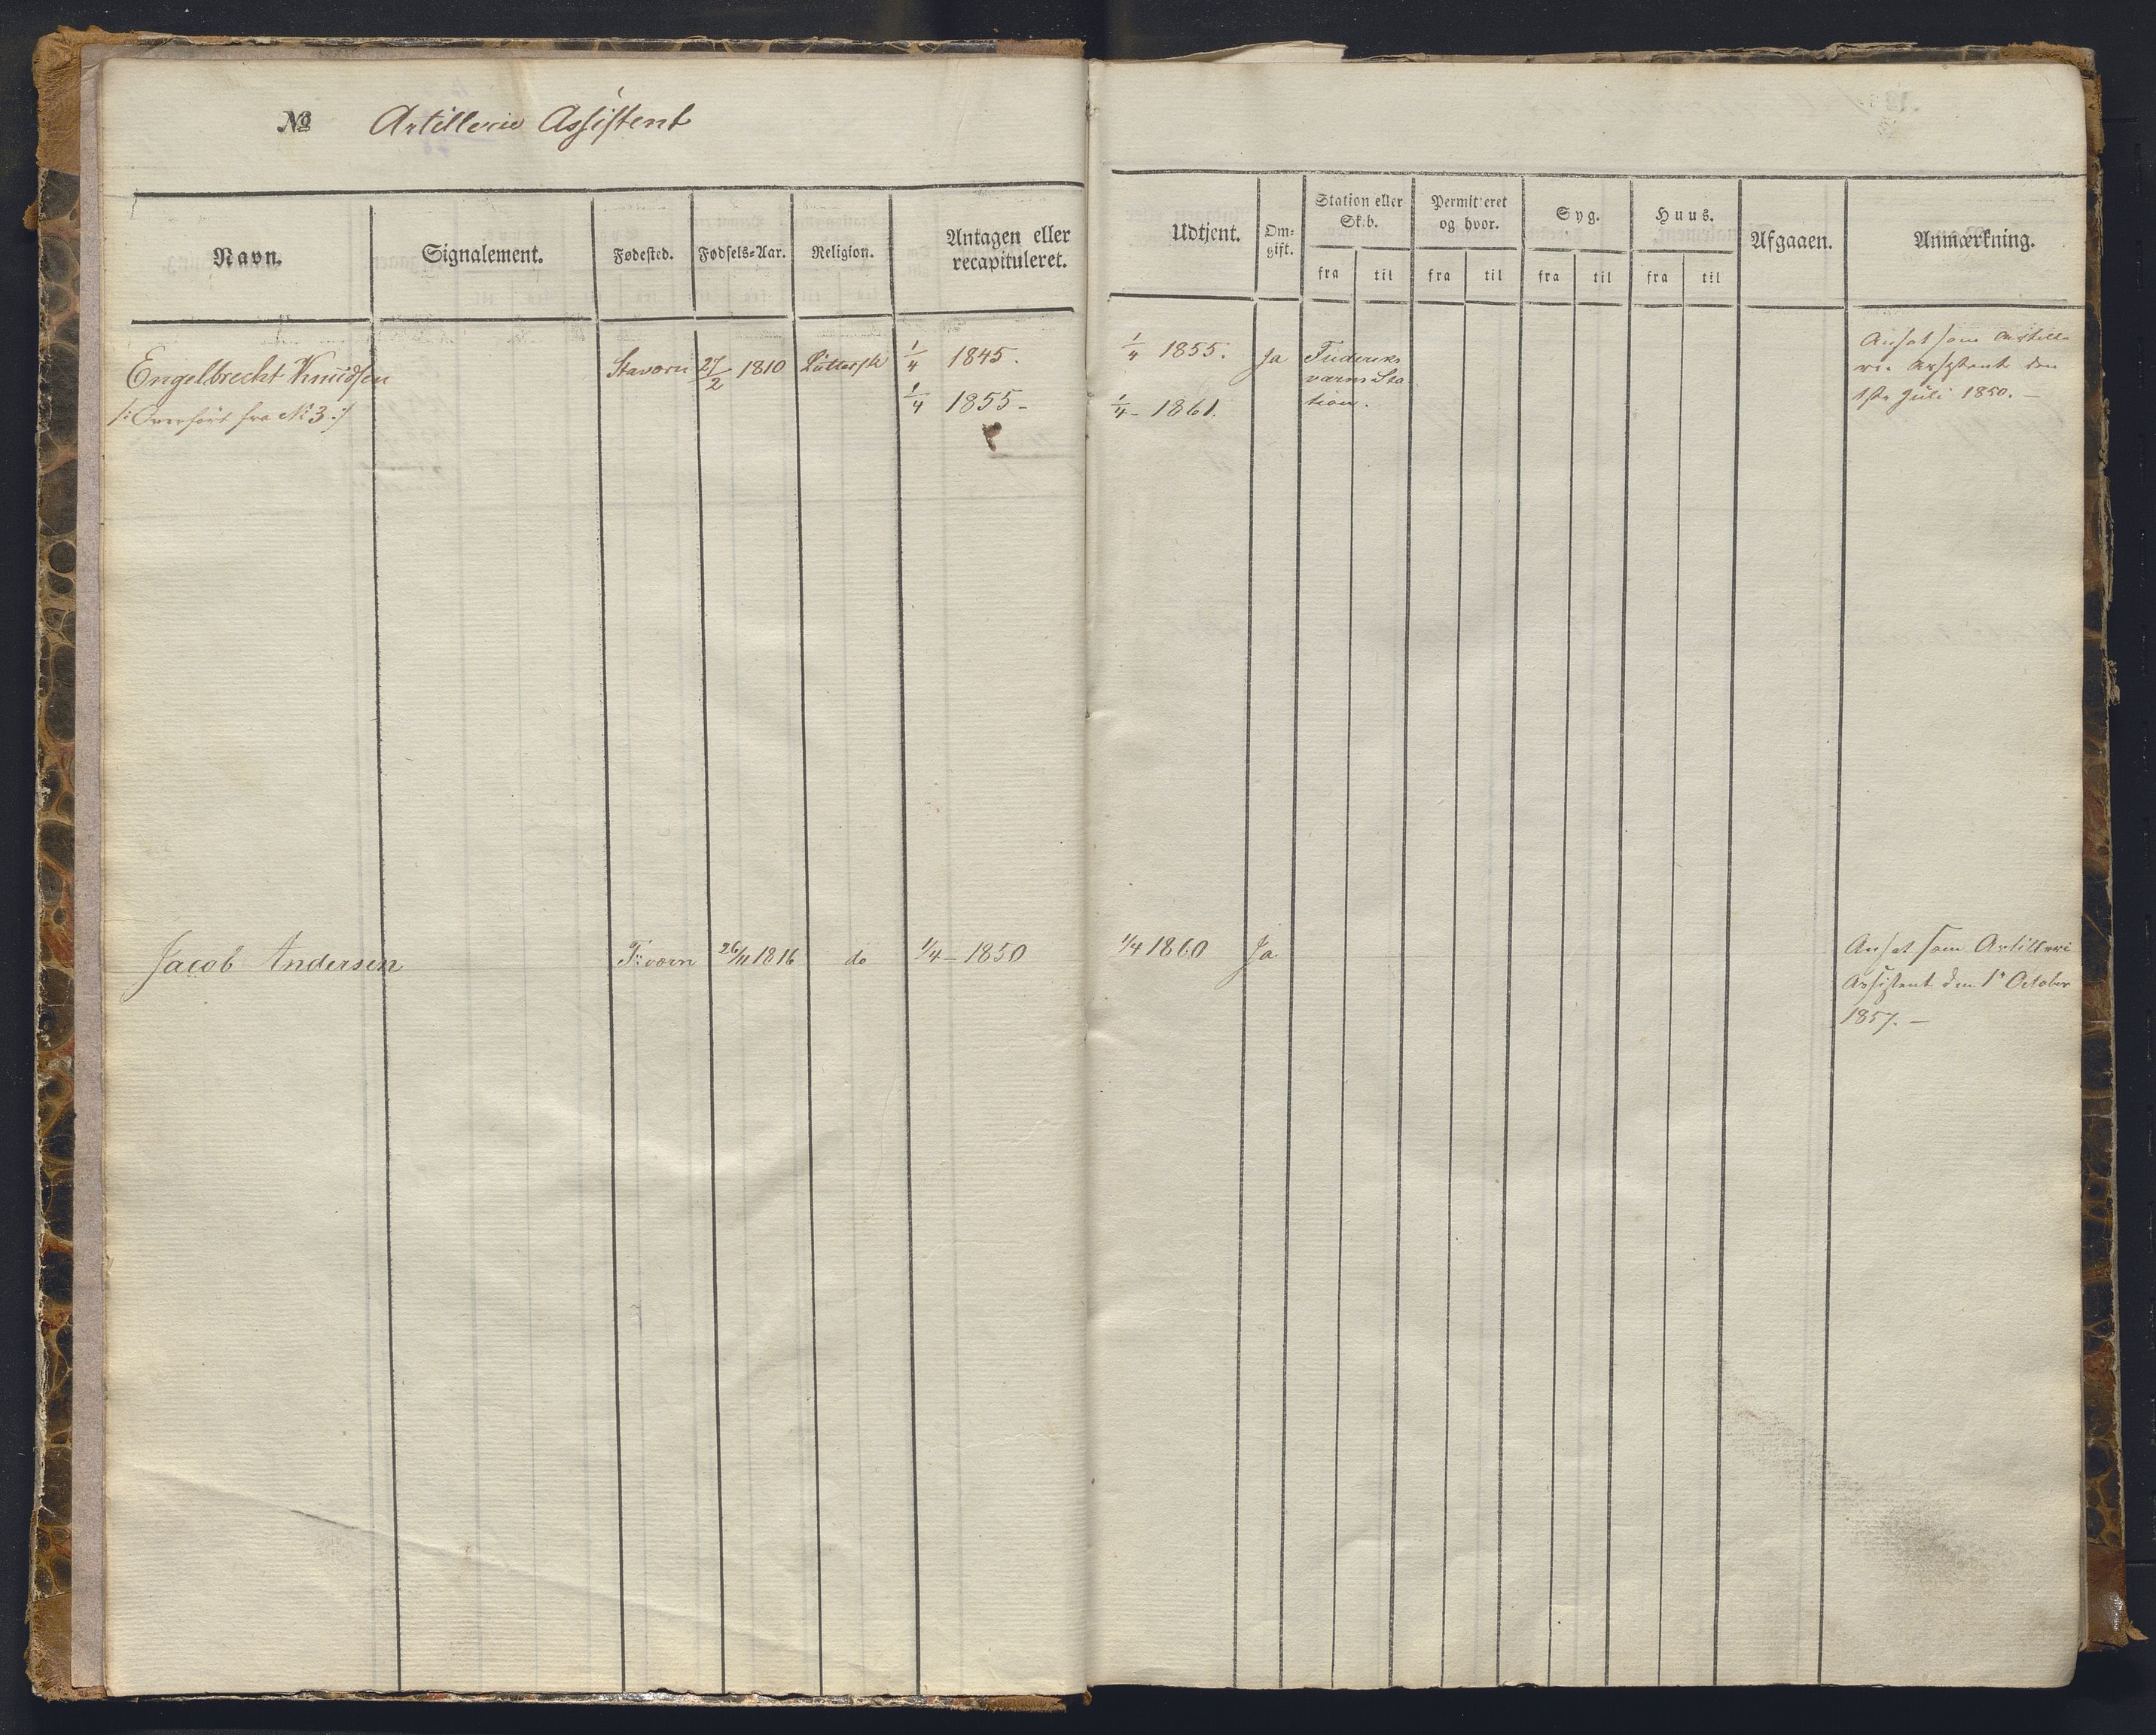 No Artillerie Assistent
Navn.
Signalement.
Fødested.
Fødsels-Aar.
Religion.
Antagen eller
recapituleret.
Udtjent.
Om-
gift.
Station eller
Skib.
fra
til
Permitteret
og hvor.
fra
til
Syg.
fra
til
Huus.
fra
til
Afgaaen.
Anmærkning.
Engelbrecht Knudsen
/: Overført fra No 3 :/
Staværn
27/2 1810
Luttersk
1/4 1845.
1/4 1855 -
1/4 1855.
1/4 - 1861.
Ja
Frideriks
værns Sta
tion.
Ansat som Artille
rie Assistent den
1ste Juli 1850. -
Jacob Andersen
F:værn
26/11 1816
do
1/4 - 1850
1/4 1860
Ja
Ansat som Artilleri
Assistent den 1ste October
1857. -